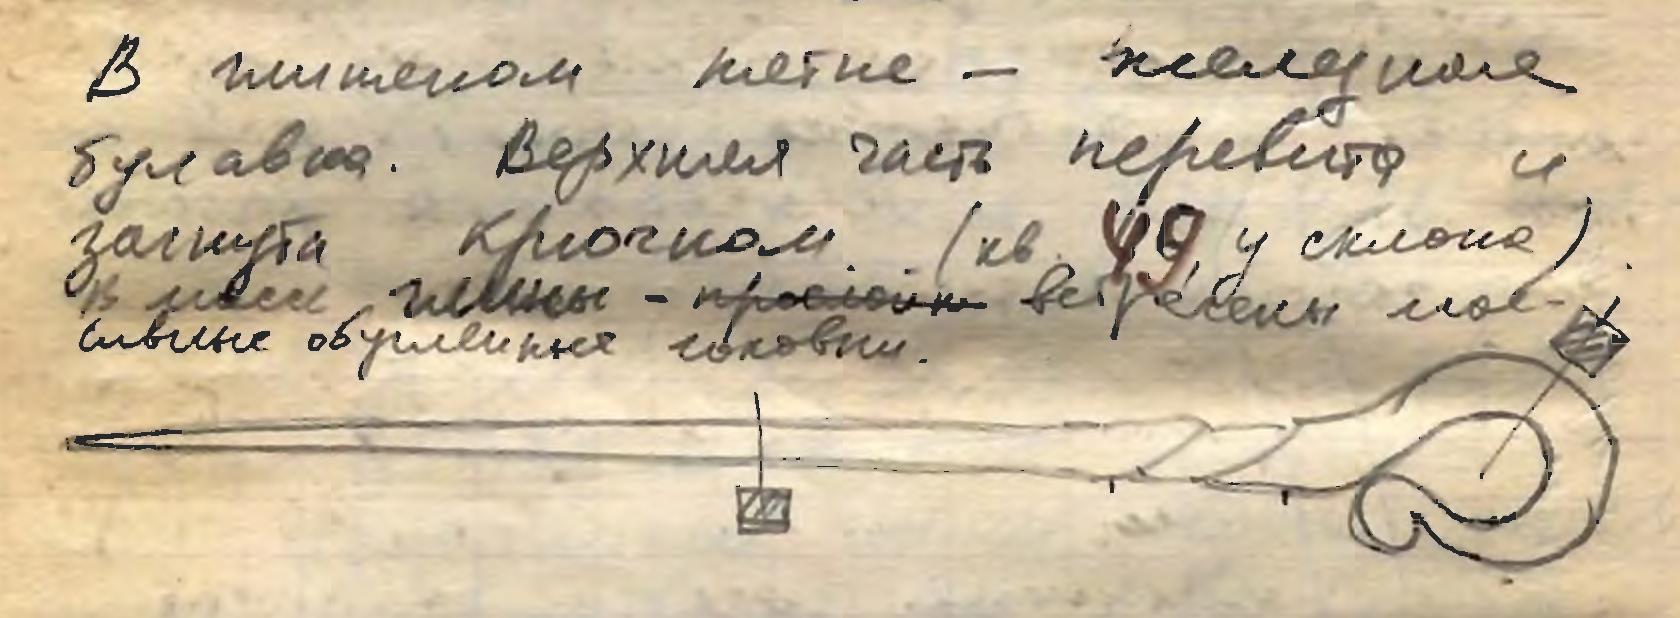 В глиняном пятне — железная
булавка. Верхняя часть перевита и
загнута крючком (кв. 49, у склона).
В массе глины - встречены мас-
сивные обугленные головни.